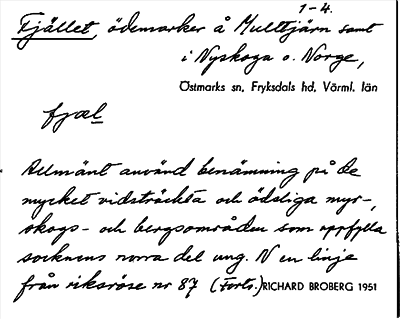 1-4.
Fjället, ödemarker å Multtjärn samt
i Nyskoga o. Norge,
Östmarks sn, Fryksdals hd, Värml. län
fjæl
Allmänt använd benämning på de
mycket vidsträckta och ödsliga myr-,
skogs- och bergsområden som uppfylla
socknens norra del ung. N en linje
från riksröse nr 87 (Forts.) RICHARD BROBERG 1951